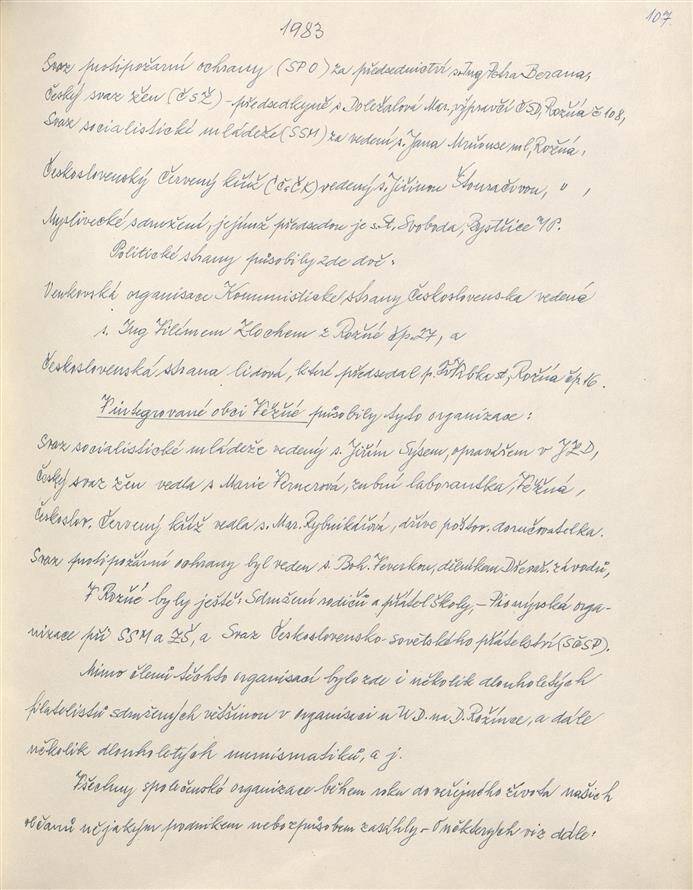 107.
1983
Svaz protipožární ochrany (SPO) za předsednictví s. Ing Petra Berana,
Český svaz žen (ČSŽ) - předsedkyně s. Doležalová Mar., výpravčí ČSD, Rožná č 108,
Svaz socialistické mládeže (SSM) za vedení s. Jana Mrňouse ml, Rožná,
Československý Červený kříž (ČsČK) vedený s. Jiřinou Štouračovou, " ,
Myslivecké sdružení, jejímž předsedou je s. A. Svoboda, Bystřice n/P.
Politické strany působily zde dvě:
Venkovská organisace Komunistické strany Československa vedená
s. Ing Vilémem Zlochem z Rožné čp. 27, a
Československá strana lidová, které předsedal p. Fr. Vrbka st, Rožná čp 16.
V integrované obci Věžné působily tyto organizace:
Svaz socialistické mládeže vedený s. Jiřím Sýsem, opravářem v JZD,
Český svaz žen vedla s Marie Vernerová, zubní laborantka, Věžná,
Českoslov. Červený kříž vedla s. Mar. Rybníkářová, dříve poštov. doručovatelka.
Svaz protipožární ochrany byl veden s. Boh. Veverkou, dělníkem Dřevař. závodů,
V Rožné byly ještě: Sdružení rodičů a přátel školy, - Pionýrská orga-
nizace při SSM a ZŠ, a Svaz Československo-sovětského přátelství (SČSP).
Mimo členů těchto organisací bylo zde i několik dlouholetých
filatelistů sdružených většinou v organisaci u UD. na D. Rožínce, a dále
několik dlouholetých numismatiků, a j.
Všechny společenské organizace během roku do veřejného života našich
občanů nějakým podnikem nebo způsobem zasáhly - O některých viz dále: